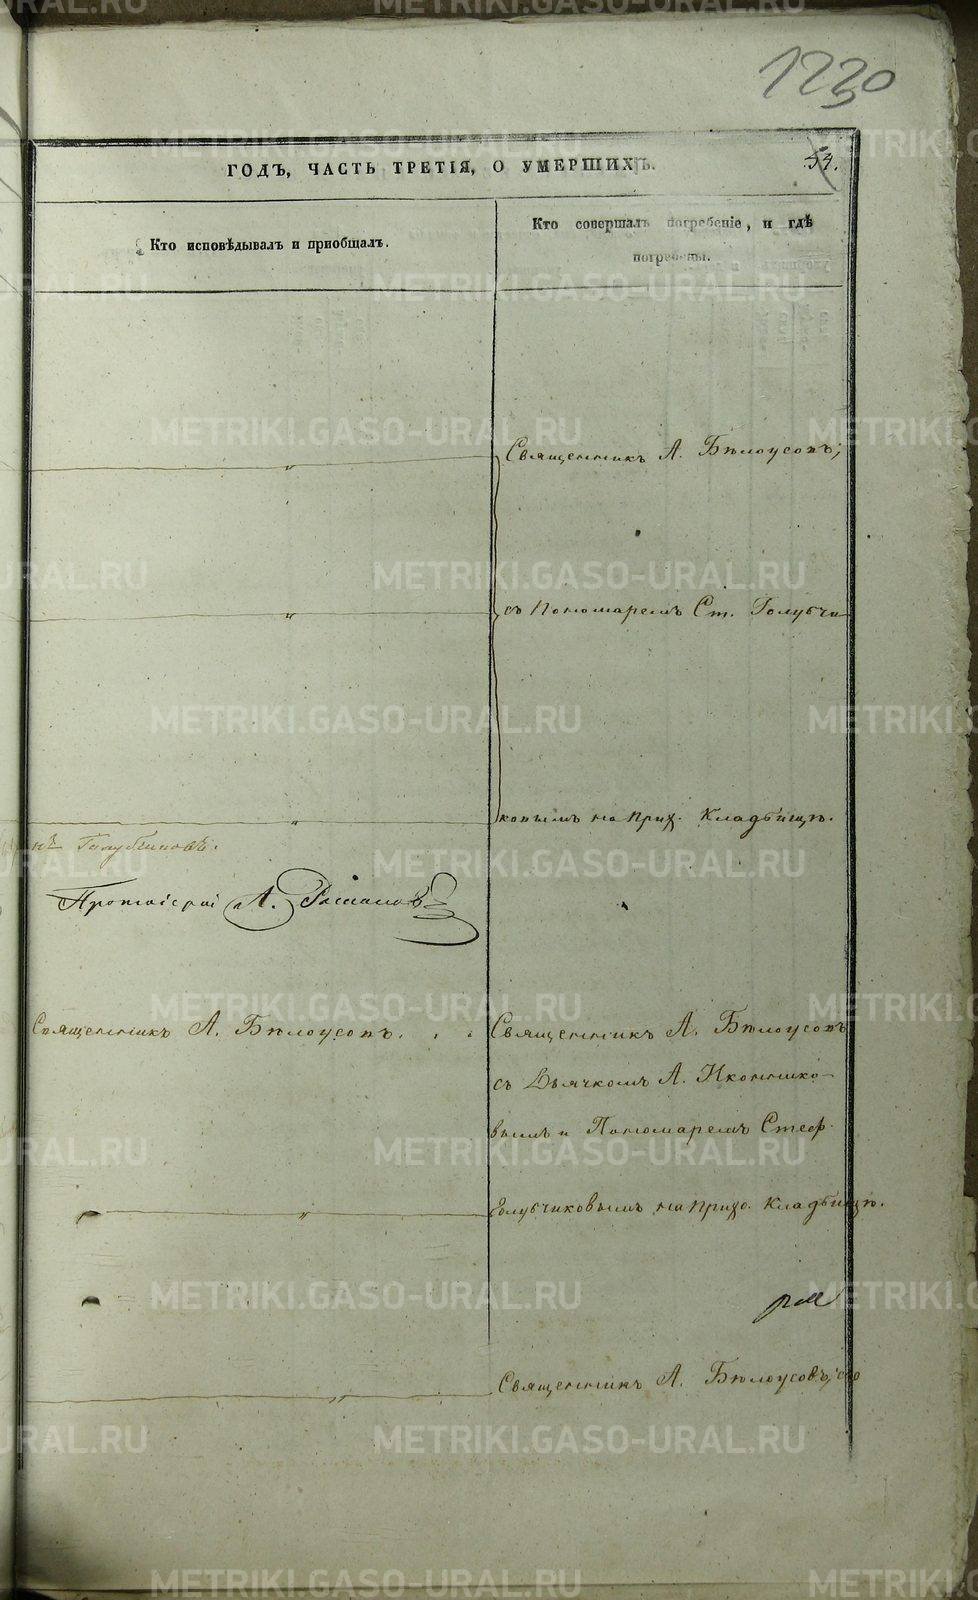 1230
ГОДЪ, ЧАСТЬ ТРЕТІЯ, О УМЕРШИХЪ.
54.
Кто исповѣдывалъ и пріобщалъ.
Кто совершалъ погребеніе, и гдѣ
погребены.
Священникъ А. Бѣлоусовъ,
съ Пономаремъ Ст. Голубчи
ковымъ на прих. Кладбищѣ.
Голубчиковъ.
Протоіерей А.
Священникъ А. Бѣлоусовъ.
Священникъ А. Бѣлоусовъ
съ Дьячкомъ А. Иконнико-
вымъ и Пономаремъ Стеф.
Голубчиковымъ на прихо. Кладбищѣ.
Священникъ А. Бѣлоусовъ, со
METRIKI.GASO-URAL.RU